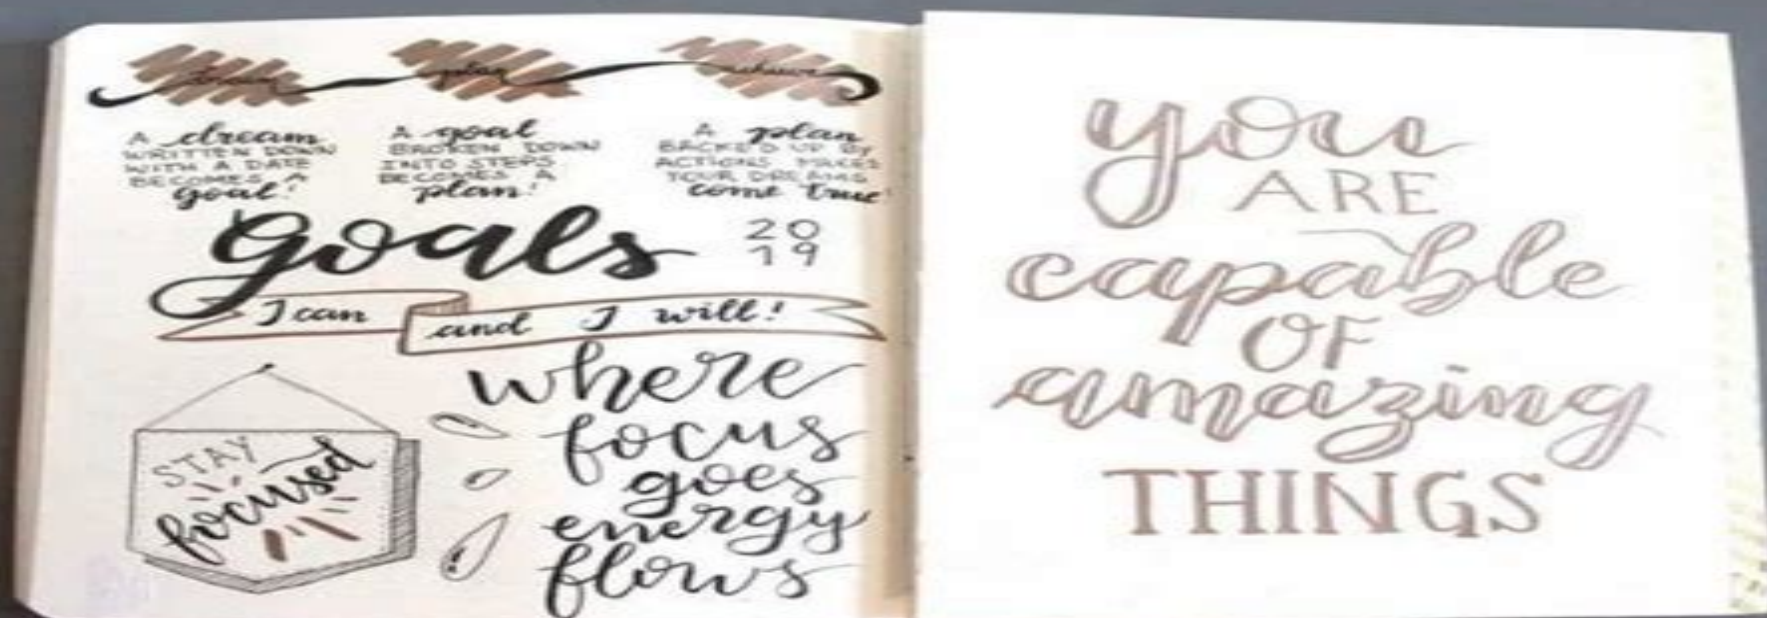 dream plan achieve
A dream
WRITTEN DOWN
WITH A DATE
BECOMES A
goal!
A goal
BROKEN DOWN
INTO STEPS
BECOMES A
plan!
A plan
BACKED UP BY
ACTIONS MAKES
YOUR DREAMS
come true!
goals
20
19
I can and I will!
STAY
focused
where
focus
goes
energy
flows
you
ARE
capable
OF
amazing
THINGS